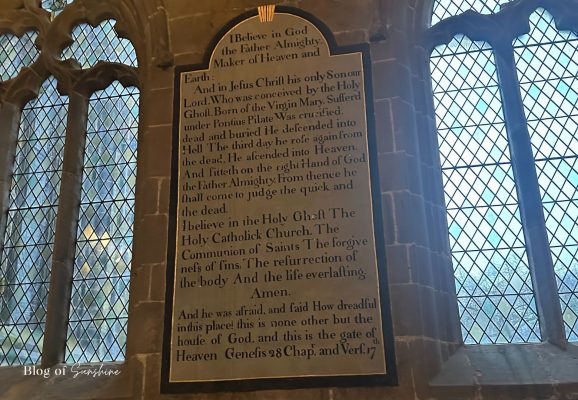 I Believe in God
the Father Almighty,
Maker of Heaven and
Earth:
And in Jeſus Chriſt his only Son our
Lord, Who was conceived by the Holy
Ghoſt, Born of the Virgin Mary, Sufferd
under Pontius Pilate Was crucified,
dead and buried He deſcended into
Hell The third day he roſe again from
the dead, He aſcended into Heaven,
And ſitteth on the right Hand of God
the Father Almighty, From thence he
ſhall come to judge the quick and
the dead.
I believe in the Holy Ghoſt The
Holy Catholick Church, The
Communion of Saints The forgive
neſs of ſins, The reſurrection of
the body And the life everlaſting.
Amen.
And he was afraid, and ſaid How dreadful
is this place! this is none other but the
houſe of God, and this is the gate of
Heaven Geneſis 28 Chapr. and Verſ. 17th
Blog of Sunshine